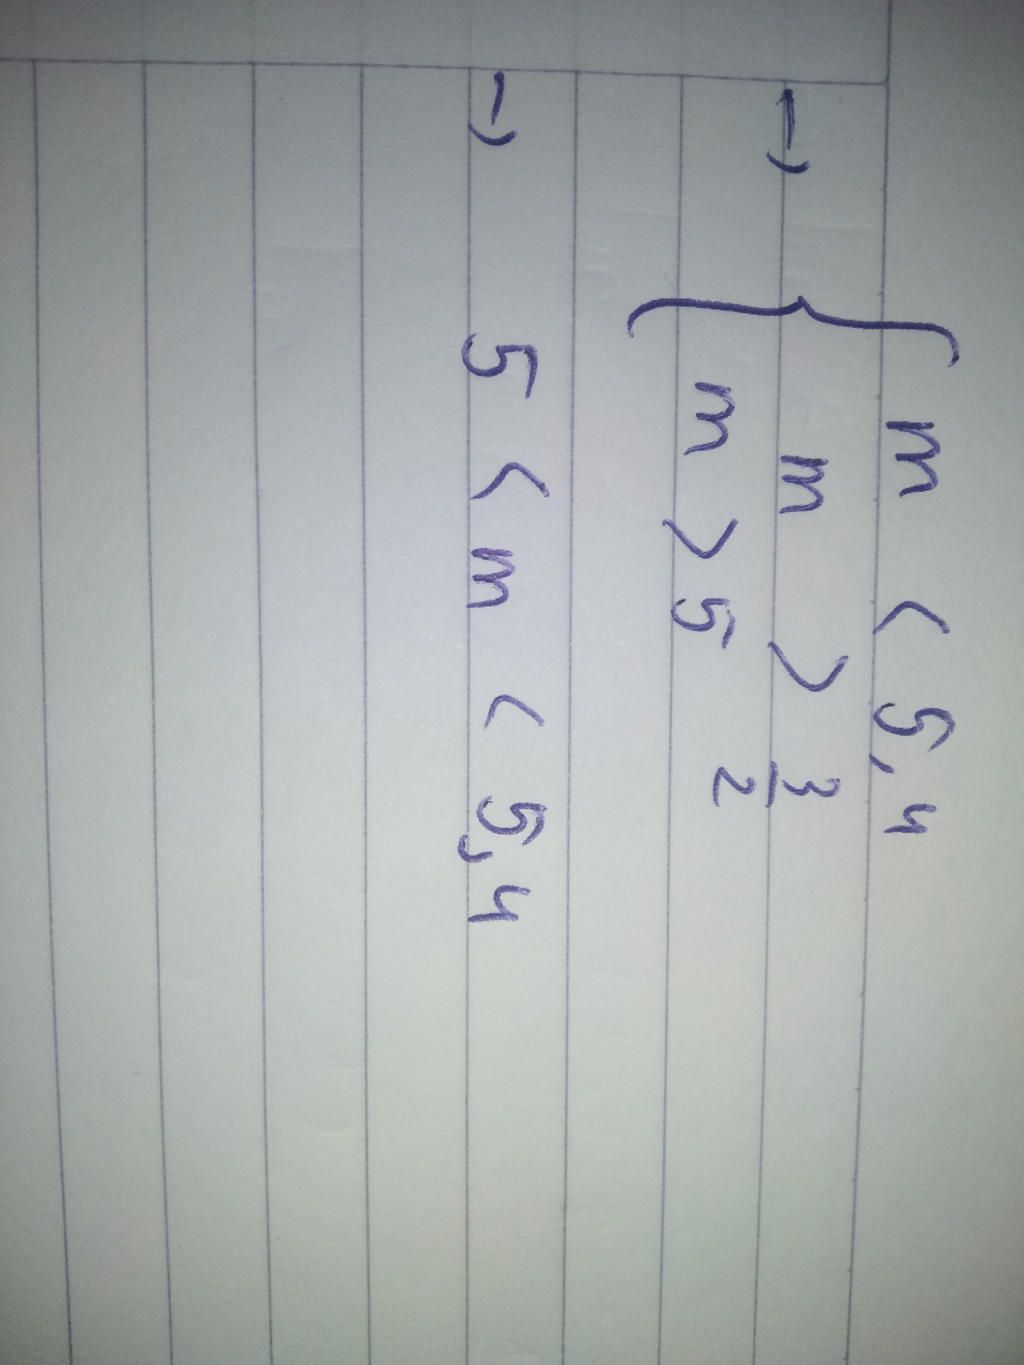 m < 5,4
→ { m > 3/2
m > 5
→ 5 < m < 5,4